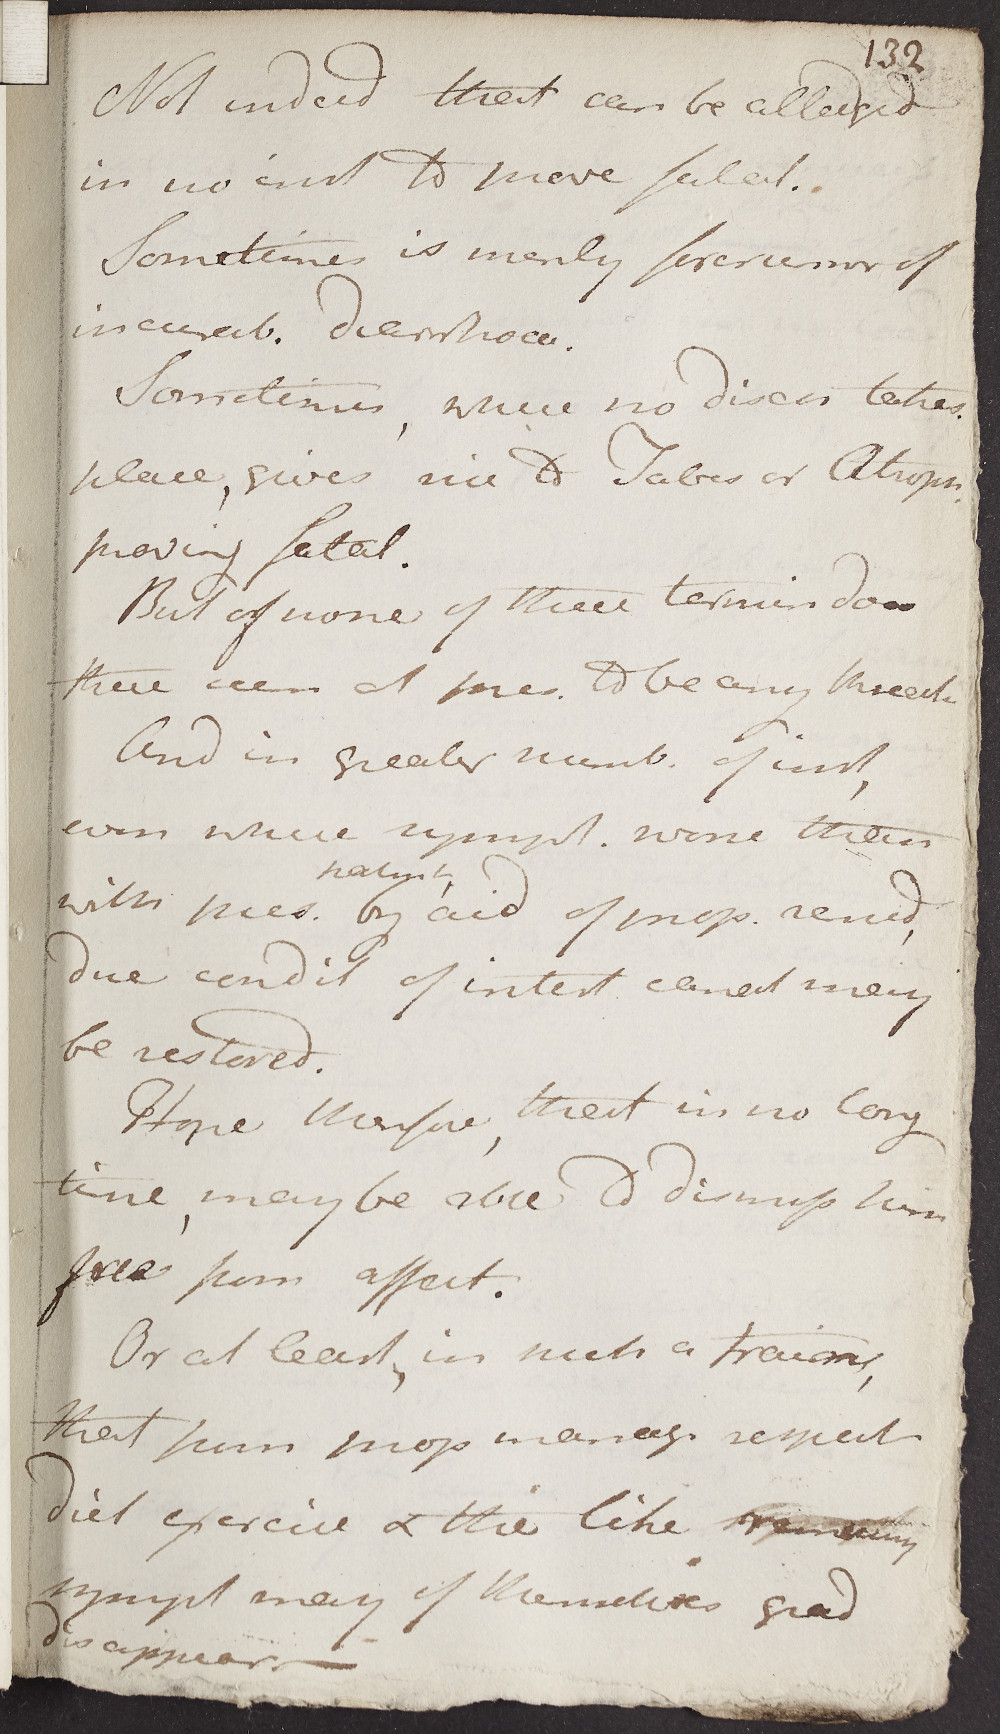 132
Not indeed that can be alledged
in no inst to prove fatal.
Sometimes is merely forerunner of
incurab. diarrhoea.
Sometimes, where no discas takes
place, gives rise to Tabes or Atroph.
proving fatal.
But of none of these termin do
there seem at pres. to be any threat
And in greater numb. of inst,
even where sympt. worse than
with pres. by aid of prop. remed,
due condit of intest canal may
be restored.
Hope therefore, that in no long
time, may be able to dismiss him
free from affect.
Or at least, in such a train,
that from prop manag. respect
diet exercise & the like remaining
sympt may of themselves grad
disappear